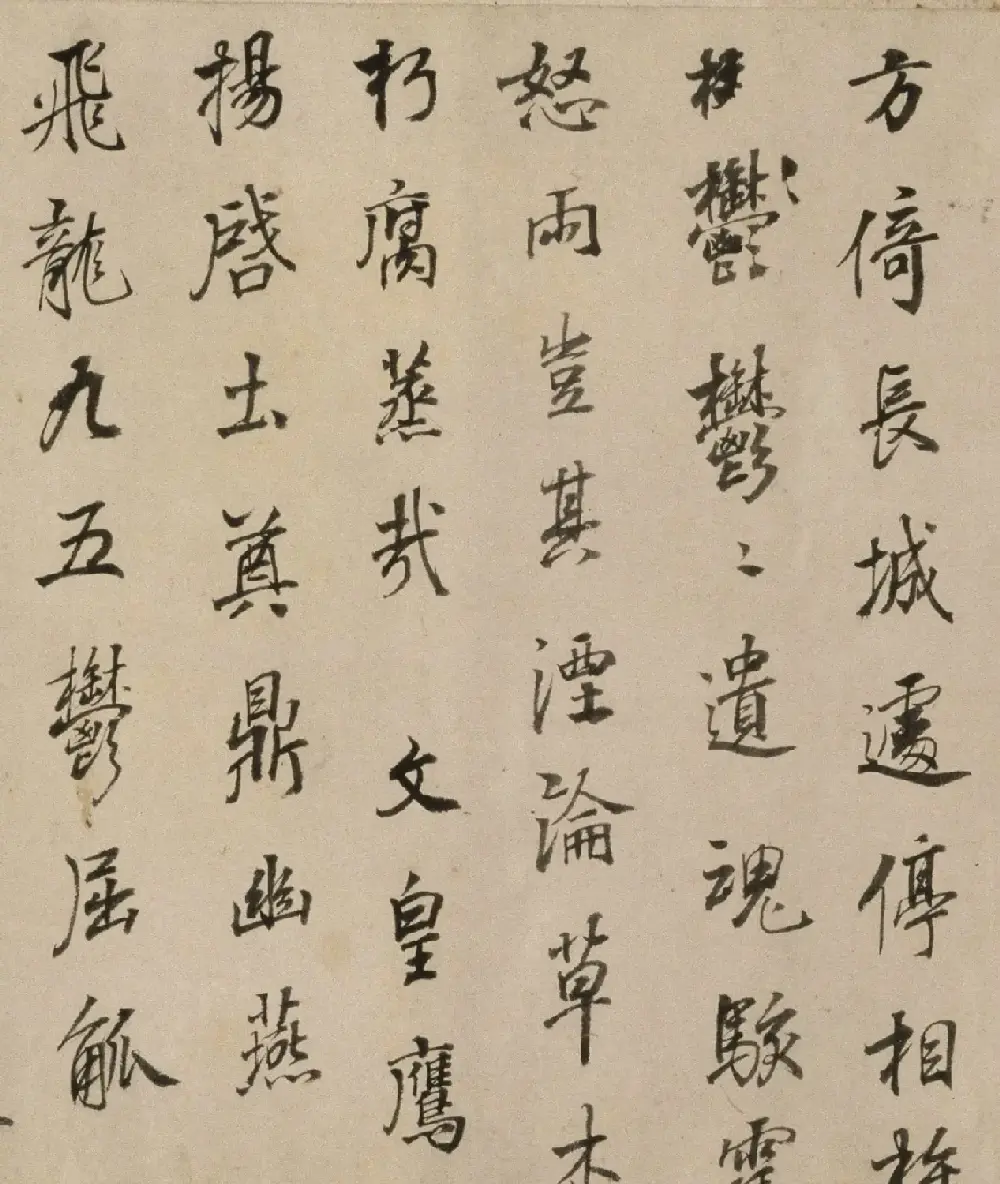 方倚長城遽停相杵
鬱鬱〻遺魂駭雷
怒雨豈其湮淪草木
朽腐蒸哉文皇鷹
揚啓土奠鼎幽燕
飛龍九五鬱屈觚